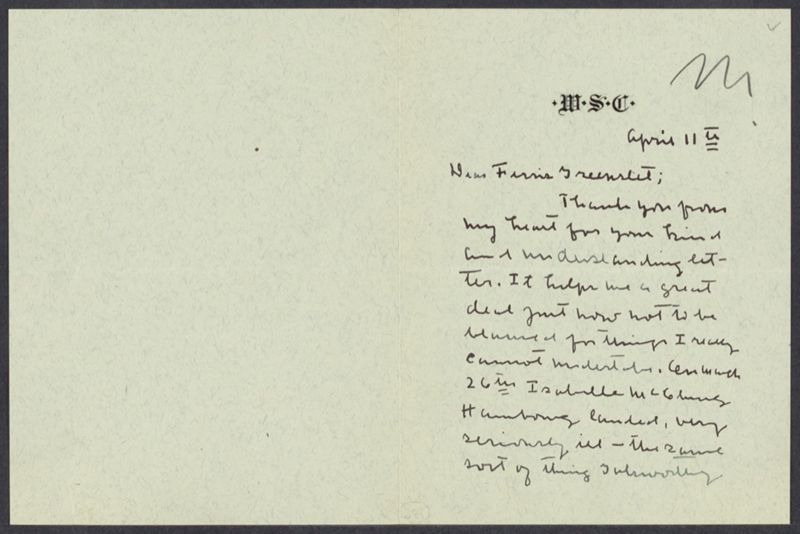 ·W·S·C·
April 11th
Dear Ferris Greenslet;
Thank you from
my heart for your kind
and understanding let-
ter. It helps me a great
deal just now not to be
blamed for things I really
cannot undertake. On March
26th Isabelle McClung
Hambourg landed, very
seriously ill – the same
sort of thing Galsworthy